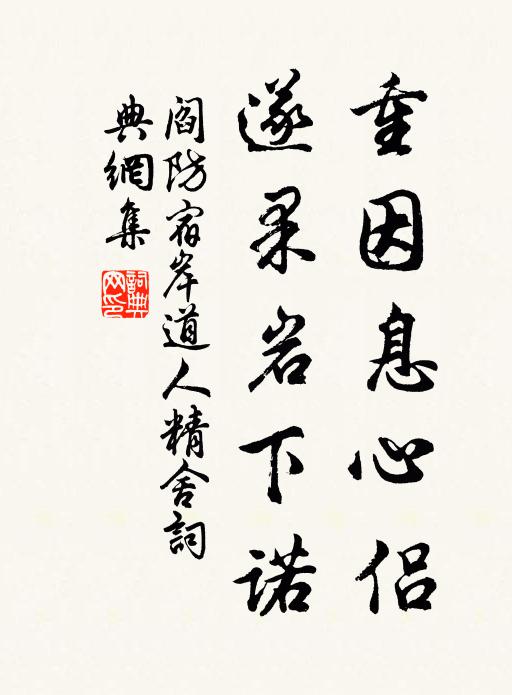 重因息心侣
遂果岩下诺
阎防宿岸道人精舍詞
典網集
詞典網印